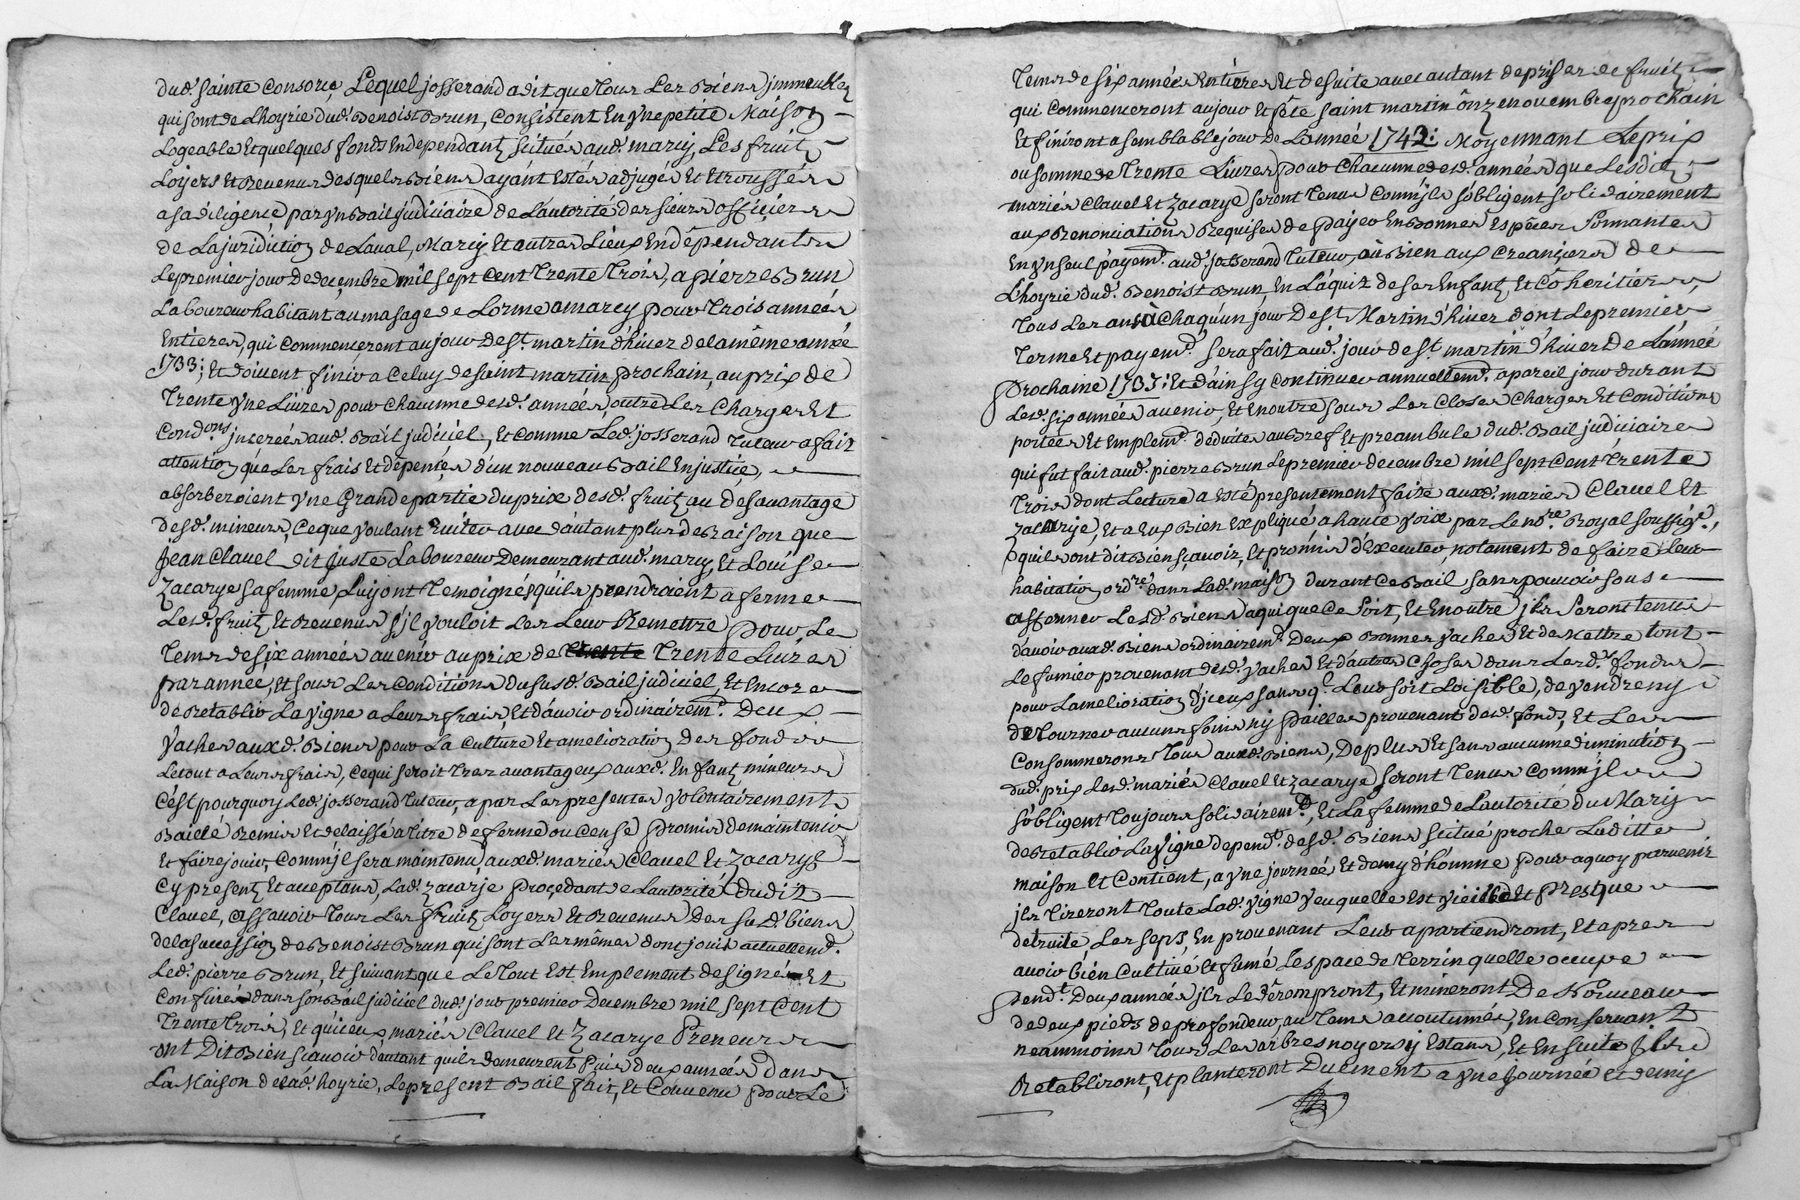 dud. sainte Consorce, Lequel josserand a dit que tous Les Biens jmmeubles
qui sont de L'hoyrie dud. Benoist Brun, Consistent En yne petite Maison
Logeable Et quelques fonds Endependantz scitués aud. marcy, Les fruitz
Loyers Et Revenus desquels Biens ayánt Estés adjugés Et Etroussés
a sa diligence par yn Bail judiciaire de L'autorité des sieurs officiers
de La juridiction de Laval, Marcy Et autres Lieux En dépendants
Le premier jour de decembre mil sept Cent Trente Trois, a pierre Brun
Laboureur habitant au masage de Lorme a marcy pour Trois années
Entieres, qui commencerent au jour de st. martin d'hiver de la même année
1733; Et doivent finir a Celuy de saint martin prochain, au prix de
Trente yne Livres pour chacunne desd. années outre Les Charges Et
Condons jnserées aud. Bail judiciel, Et comme Led. josserand Tuteur a fait
attention que Les frais Et dépences d'un nouveau Bail En justice,
absorberoient yne Grande partie du prix desd. fruitz au désavantage
desd. mineurs, Ce que youlant Euiter avec dautant plus de Raison que
Jean Clavel dit juste Laboureur Demeurant aud. marcy, Et Louise
Zacarye sa femme, Luy ont Temoignés qu'ils prendroient a ferme
Lesd. fruitz Et Revenus s'il youloit Les Leur Remettre pour Le
Tems de six années avenir au prix de Trente Trente Livres
par année, Et sous Les Conditions du susd. Bail judiciel, Et Encore
de Retablir La yigne a Leurs frais, Et d'avoir ordinairemt. Deux
yaches auxd. Biens pour La Culture Et amelioration des fonds
Le tout a Leurs frais, Ce qui seroit Tres avantageux auxd. Enfantz mineurs
C'est pourquoy Led. josserand Tuteur, a par Les presentes yolontairement
Baillé Remis Et delaissé a titre de ferme ou Cense Promis de maintenir
Et faire jouir, Comm'jl sera maintenu auxd. mariés Clavel Et Zacarye
Cy presentz Et acceptans, Lad. Zacarje procedant de L'autorité dudit
Clavel, assavoir Tous Les fruitz Loyers Et Revenus des sud. biens
de la succession de Benoist Brun qui sont Les mêmes dont jouit actuellemt.
Led. pierre Brun, Et suivant que Le Tout Est Emplement designé Et
Confinés dans son Bail judiciel dud. jour premier Decembre mil sept Cent
Trente Trois, Et qu'iceux mariés Clavel Et Zacarye Preneurs
ont Dit Bien sçavoir d'autant quils demeurent Puis deux années dans
La Maison de Lad. hoyrie, Le present Bail fait, Et Convenu pour Le
Tems de six années Entieres Et de suite avec autant de prises de fruitz
qui Commenceront au jour Et fête saint martin onze novembre prochain
Et finiront a semblable jour de L'année 1742: Moyennant Le prix
ou somme de Trente Livres pour Chacunne desd. années que Lesdits
mariés Clavel Et Zacarye seront Tenus Comm'jls s'obligent solidairement
aux Renonciations Requises de payer En Bonnes Espèces sonnantes
En yn seul payemt. aud. josserand Tuteur, ou Bien aux Creanciers de
L'hoyrie dud. Benoist Brun, En L'aquit de ses Enfantz Et Cohéritiers,
Tous Les ans à Chaqu'un jour De st. Martin d'hiver dont Le premier
Terme Et payemt. sera fait aud. jour de st. martin d'hiver De L'année
Prochaine 1737: Et d'ainsy Continuer annuellemt. a pareil jour durant
Lesd. six années avenir, Et En outre sous Les Closes Charges Et Conditions
portées Et Emplemt. deduites au Bref Et preambule dud. Bail judiciaire
qui fut fait aud. pierre Brun Le premier decembre mil sept Cent Trente
Trois dont Lecture a Esté presentement faite auxd. mariés Clavel Et
Zacarije, Et a Eux Bien Expliqué a haute yoix par Le nore. Royal soussigé.,
qu'ils ont dit Bien sçavoir, Et promis d'Executer, notament de faire Leur
habitation ordre. dans Lad. maison durant Ce Bail sans pouvoir sous
affermer Lesd. Biens a qui que Ce soit, Et En outre jls seront tenus
d'avoir auxd. Biens ordinairemt. Deux Bonnes yaches Et de Mettre tout
Le fumier provenant desd. yaches Et d'autres Choses dans Lesd. fonds
pour L'amelioration d'jceux sans q. Leur soit Loisible, de yendre ny
de Tourner aucuns foins ny Pailles provenant desd. fonds, Et Les
Consommerons Tous auxd. Biens, De plus Et sans aucunne diminution
dud. prix Lesd. mariés Clavel Et Zacarye seront Tenus Comm'jls
s'obligent Toujours solidairemt., Et La femme de L'autorité du Mary
de Retablir La yigne dependt. desd. Biens scitué proche Laditte
maison Et Contient, a yne journée Et demy d'homme pour a quoy parvenir
jls Tireront Toute Lad. yigne yeu quelle Est yieille Et presque
detruite, Les seps, En provenant Leur apartiendront, Et apres
avoir bien Cultivé Et fumé Lespace de Terrin quelle occupe
Pendt. Deux années jls Le déromponront, Et mineront De Nouveau
de deux pieds de profondeur au Tems accoutumés, En Conservant
neammoins Tous Les arbres noyers y Estans, Et Ensuite jls
Retabliront, Et planteront Duement a yne Journée Et demis